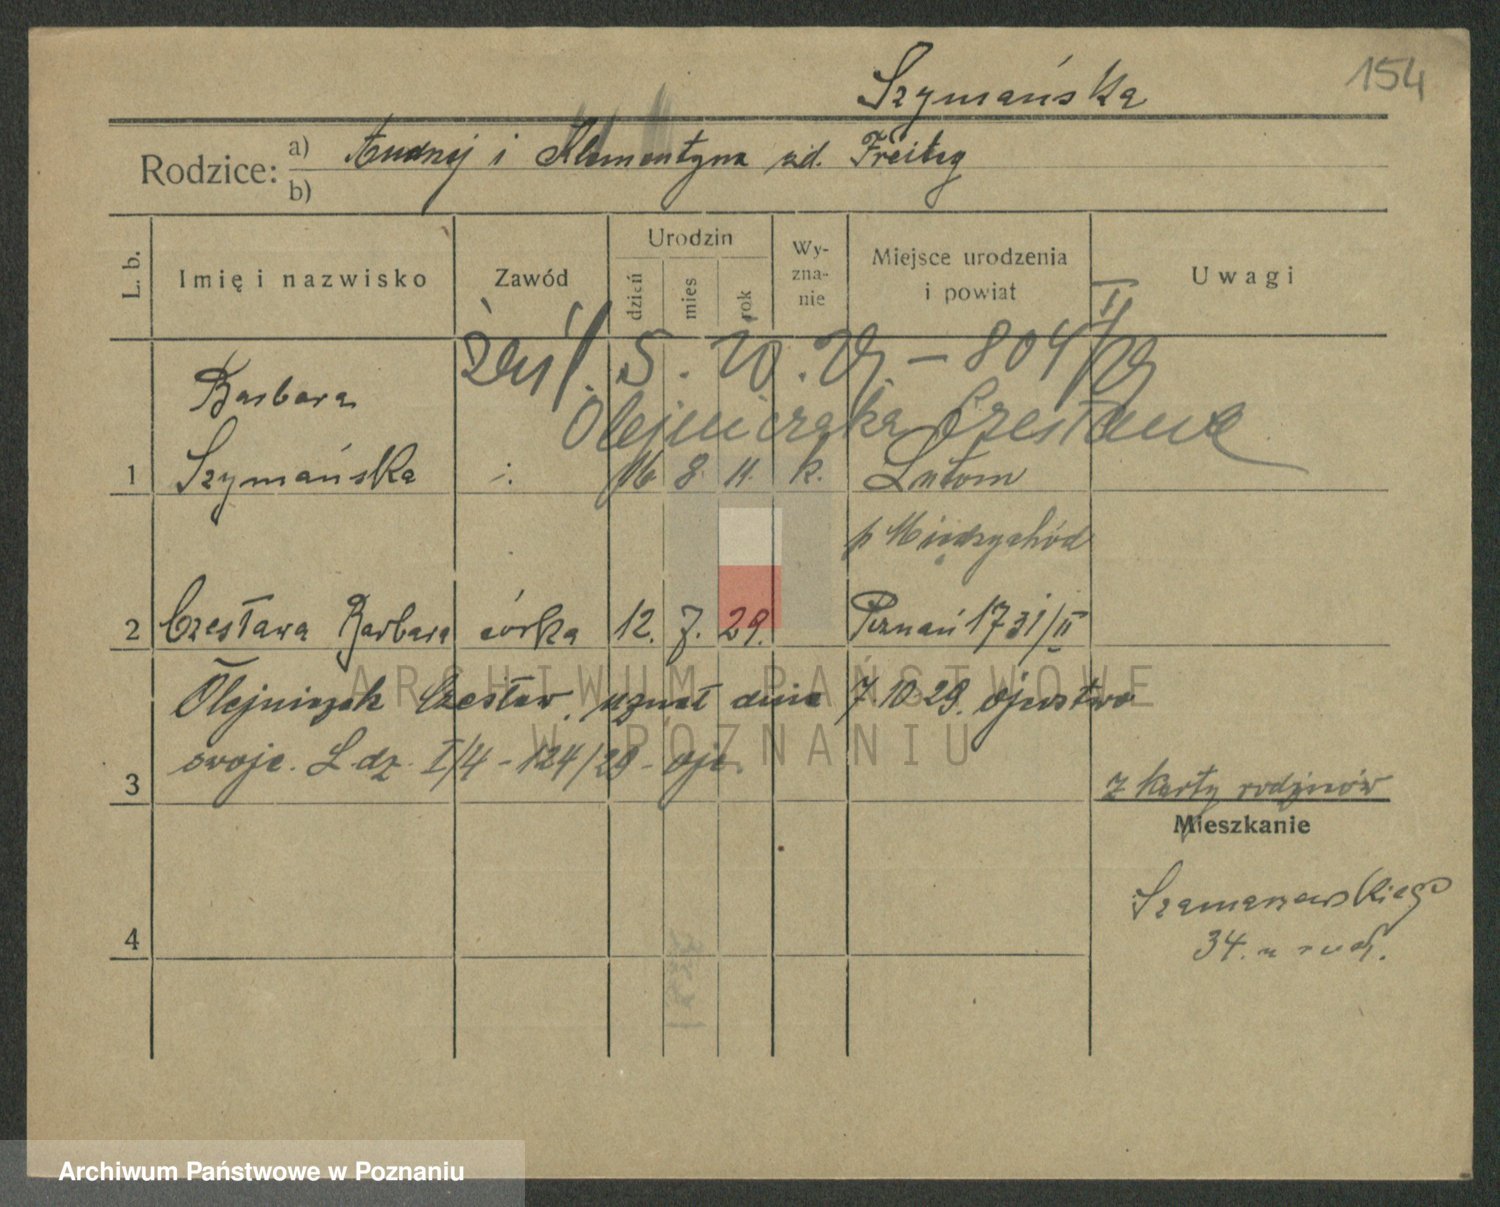 Szymańska
154
Rodzice: a) Andrzej i Klementyna zd. Freitag
b)
L. b.
Imię i nazwisko
Zawód
Urodzin
dzień
mies
rok
Wy-
zna-
nie
Miejsce urodzenia
i powiat
Uwagi
5. 10. 29 – 804 II/29
Olejniczaka Czesława
1 Barbara
Szymańska 16 8. 11. k. Lutom
p Międzychód
2 Czesława Barbara córka 12. 7. 29. Poznań 1731/II
Olejniczak Czesław uznał dnia 7.10.29. ojcostwo
3 swoje. L. dz. I/4 – 124/29 –
z karty rodziców
Mieszkanie
Szamarzewskiego
34.
4
ARCHIWUM PAŃSTWOWE
W POZNANIU
Archiwum Państwowe w Poznaniu